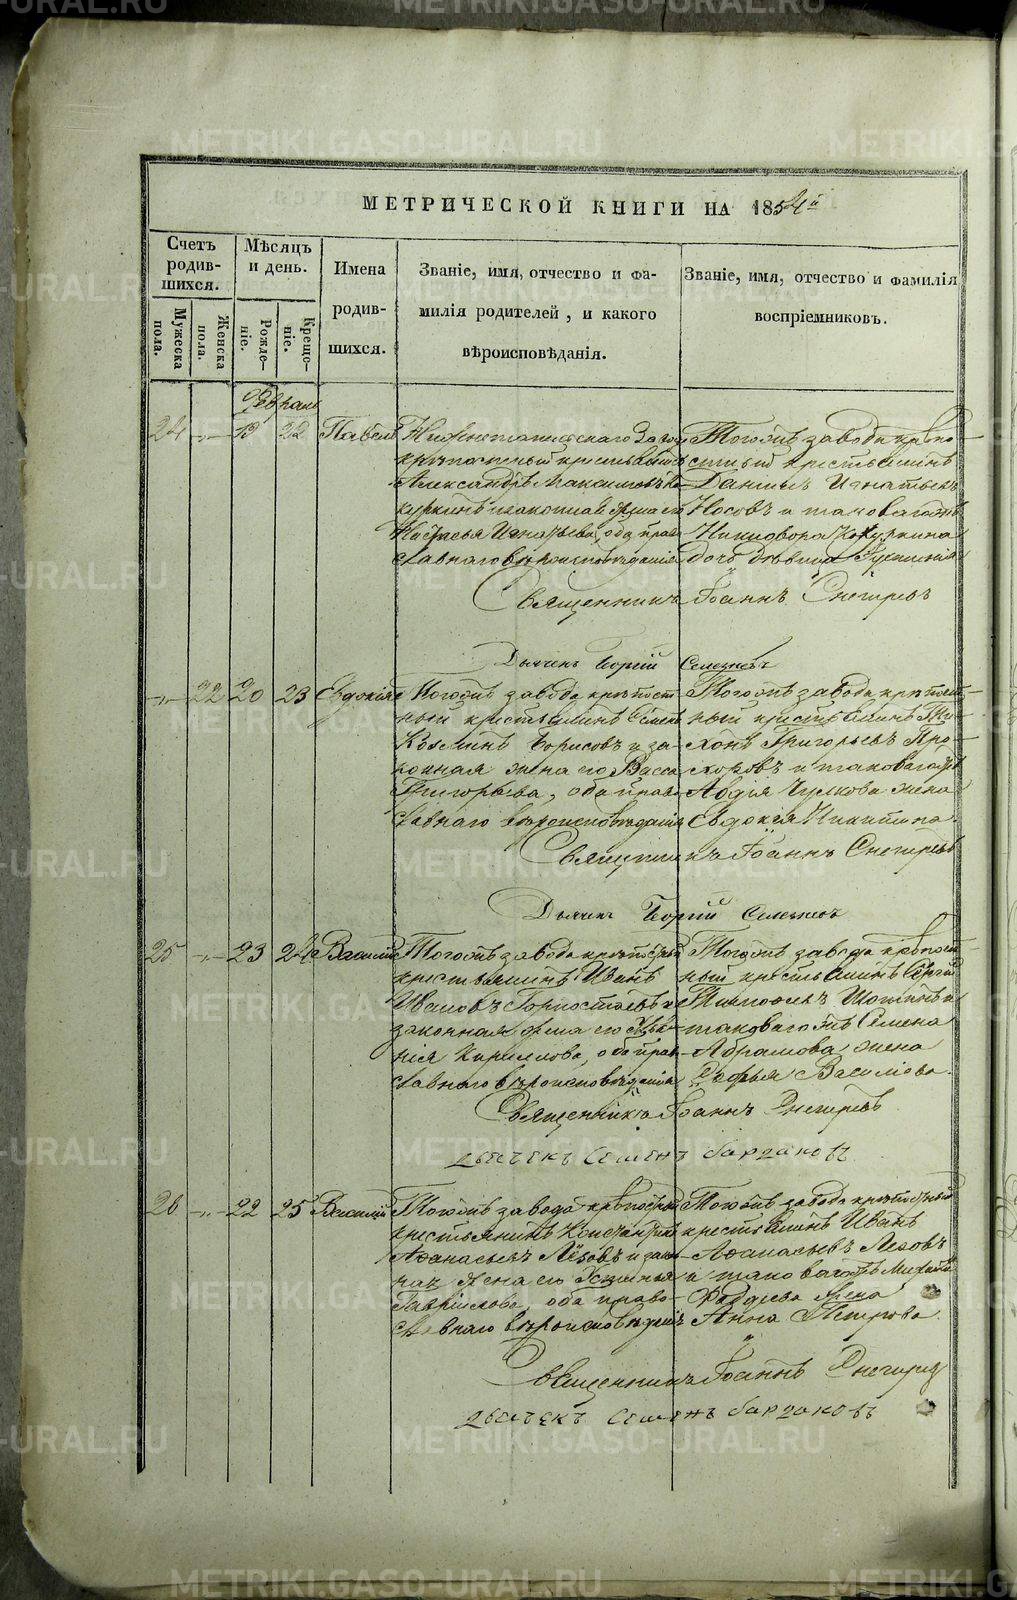 МЕТРИЧЕСКОЙ КНИГИ НА 1854й
Счетъ родив-шихся.
Мужеска пола.
Женска пола.
Мѣсяцъ и день.
Рожде-ніе.
Креще-ніе.
Имена родив-шихся.
Званіе, имя, отчество и фа-
милія родителей, и какого
вѣроисповѣданія.
Званіе, имя, отчество и фамилія
воспріемниковъ.
Февраль
24 -„- 22 Павелъ
Нижнетагильскаго Заво
крѣпостный крестьянинъ
Александръ Максимовъ Ко
куркинъ и законная жена его
Настасья Игнатьева, оба прав
славнаго вѣроисповѣданія
Тогожъ завода крѣпо
стный крестьянинъ
Данилъ Игнатьевъ
Носовъ и таковагожъ
Никифора Кокуркина
дочь дѣвица
Священникъ Іоаннъ Снегиревъ
Дьячекъ Георгій Селезневъ
-„- 22 20 23 Евдокія
Тогожъ завода крѣпост
ный крестьянинъ Семенъ
Козминъ Борисовъ и за-
конная жена его Васса
Григорьева, оба прав
славнаго вѣроисповѣданія
Тогожъ завода крѣпост
ный крестьянинъ Ти
хонъ Григорьевъ Про-
хоровъ и таковагожъ
Авдія Чулкова жена
Евдокія Никитина.
Священникъ Іоаннъ Снегиревъ
Дьячекъ Георгій Селезневъ
25 -„- 23 24 Василій
Тогожъ завода крѣпостный
крестьянинъ Иванъ
Ивановъ Горностаевъ и
законная жена его
нія Кириллова, оба прав-
славнаго вѣроисповѣданія
Тогожъ завода крѣпост
ный крестьянинъ Сергій
Тимофеевъ и
таковагожъ Семена
Абрамова жена
Софья Василіева.
Священникъ Іоаннъ Снегиревъ
дьячекъ Семенъ Барзаковъ
26 -„- 22 25 Василій
Тогожъ завода крѣпостный
крестьянинъ Константинъ
Аѳанасьевъ Лезовъ и закон-
ная жена его Устинья
Гавріилова, оба право-
славнаго вѣроисповѣданія
Тогожъ завода крѣпостный
крестьянинъ Иванъ
Аѳанасьевъ Лезовъ
и таковагожъ Михаила
Фаддѣева жена
Анна Петрова.
Священникъ Іоаннъ Снегиревъ
дьячекъ Семенъ Барзаковъ
METRIKI.GASO-URAL.RU